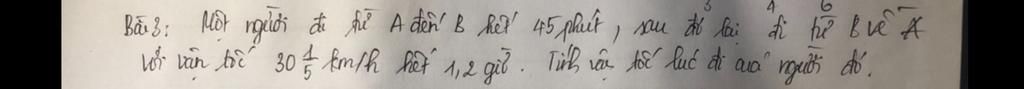 Bài 3: Một người đi từ A đến B hết 45 phút, sau đó lại đi từ B về A
với vận tốc 30 1/5 km/h hết 1,2 giờ. Tính vận tốc lúc đi của người đó.